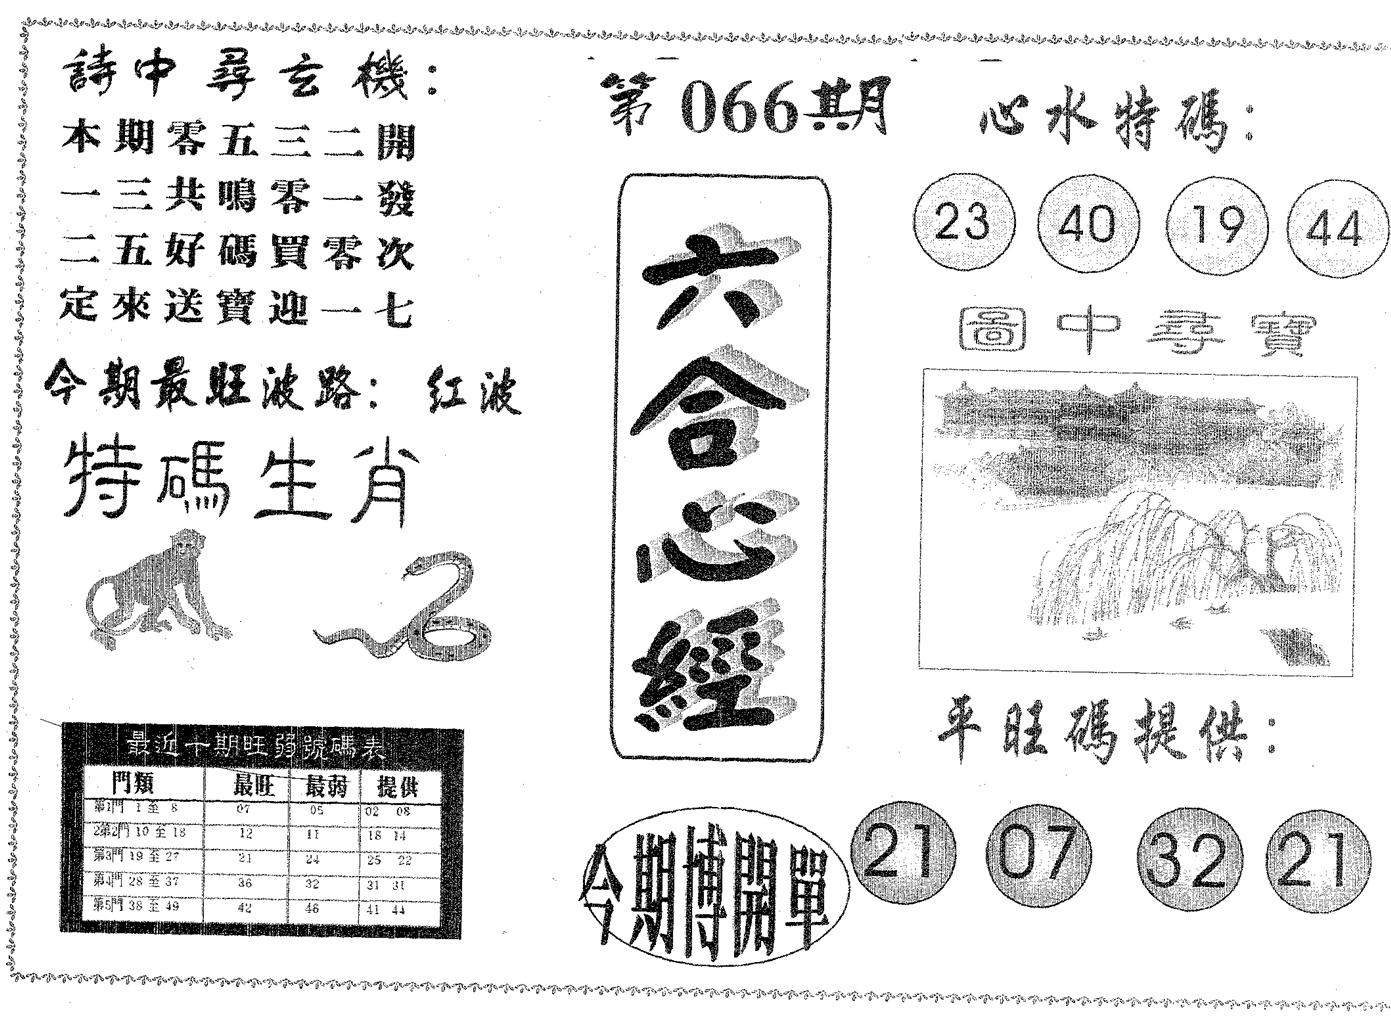 詩中尋玄機：
本期零五三二開
一三共鳴零一發
二五好碼買零次
定來送寶迎一七
今期最旺波路： 红波
特碼生肖
最近十期旺弱號碼表
門類 最旺 最弱 提供
第1門 1 至 8 07 05 02 08
2第2門 10 至 18 12 11 18 14
第3門 19 至 27 21 24 25 22
第4門 28 至 37 36 32 31 31
第5門 38 至 49 42 46 41 44
第066期
六合心經
今期博開單
心水特碼：
23 40 19 44
圖中尋寶
平旺碼提供：
21 07 32 21